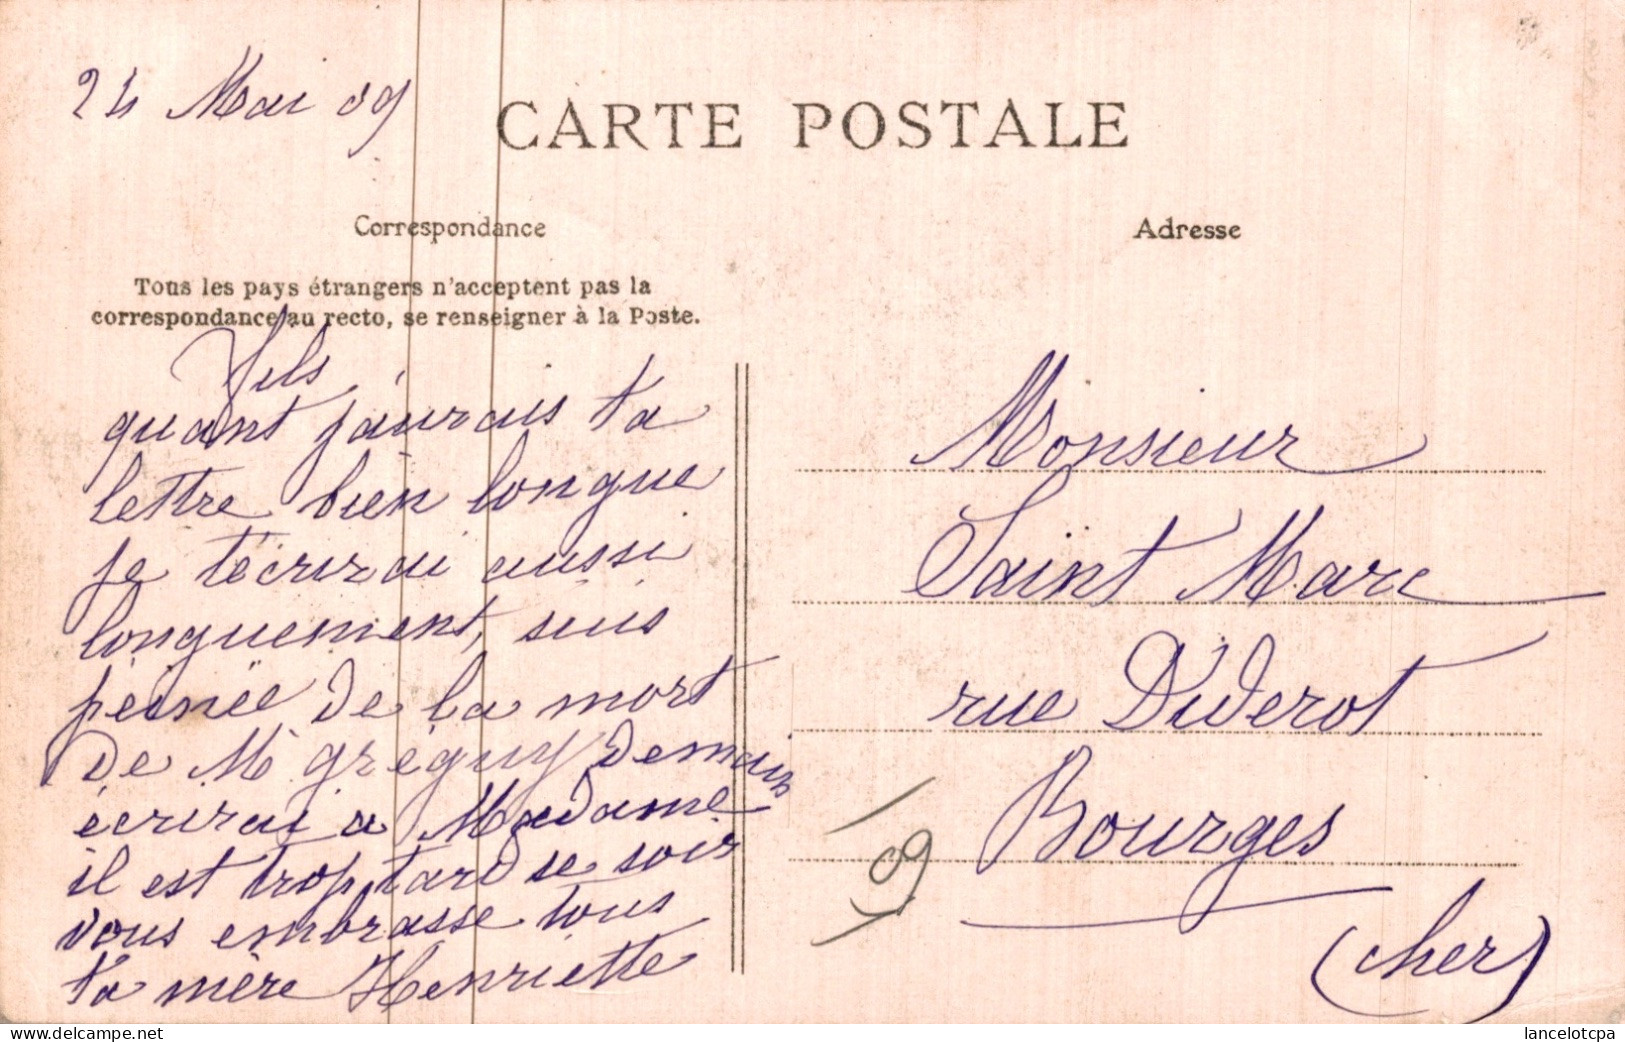 24 Mai 09
CARTE POSTALE
Correspondance
Tous les pays étrangers n'acceptent pas la
correspondance au recto, se renseigner à la Poste.
Fils
quant j'aurais ta
lettre bien longue
je t'écrirai aussi
longuement, suis
peinée de la mort
de Mr gréguy demain
écrirai a Madame
il est trop tard se soir
vous embrasse tous
ta mère Henriette
Adresse
Monsieur
Saint Marc
rue Diderot
Bourges
(Cher)
09
lancelotcpa